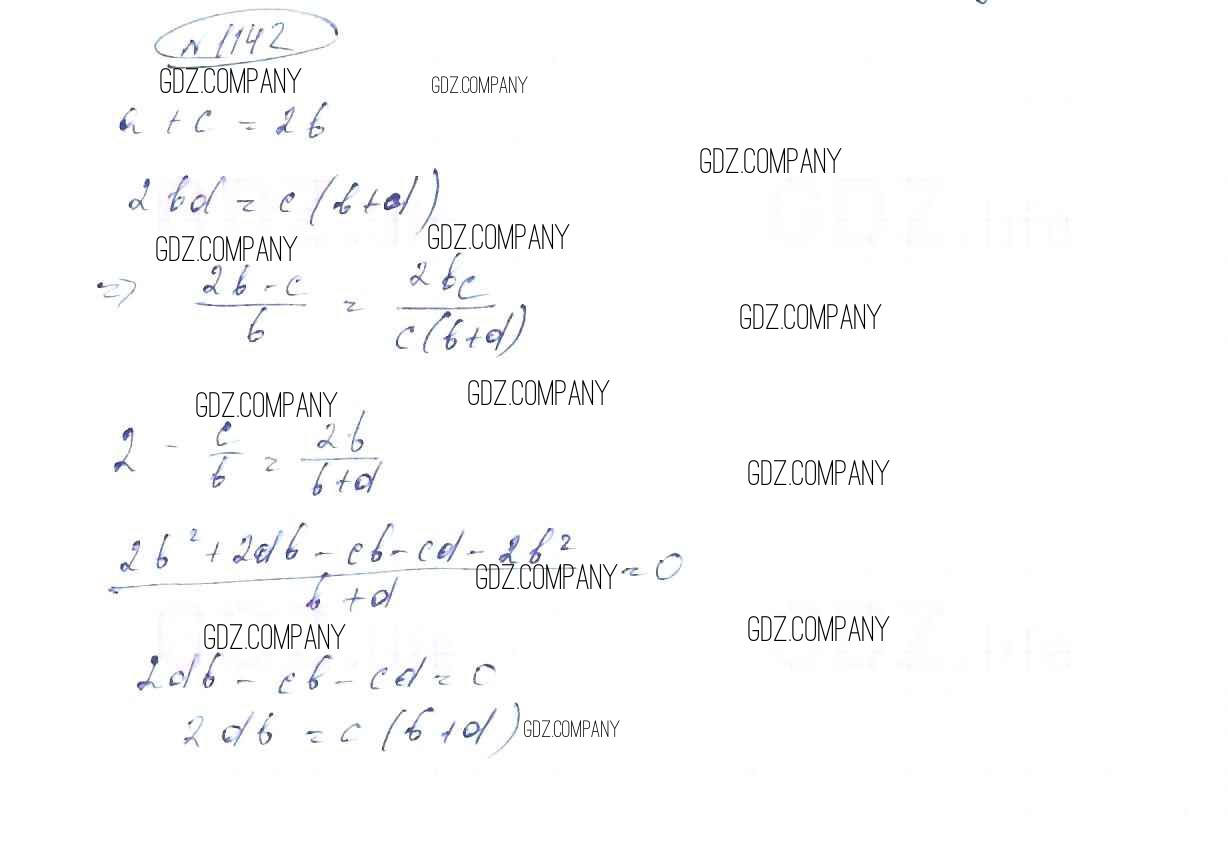 № 1142
GDZ.COMPANY GDZ.COMPANY
a + c = 2b
GDZ.COMPANY
2bd = c(b+d)
GDZ.COMPANY GDZ.COMPANY
=> (2b - c)/b = 2bc/(c(b+d))
GDZ.COMPANY
GDZ.COMPANY GDZ.COMPANY
2 - c/b = 2b/(b+d)
GDZ.COMPANY
(2b² + 2db - cb - cd - 2b²)/(b + d) = 0
GDZ.COMPANY
GDZ.COMPANY GDZ.COMPANY
2db - cb - cd = 0
2db = c(b+d)
GDZ.COMPANY